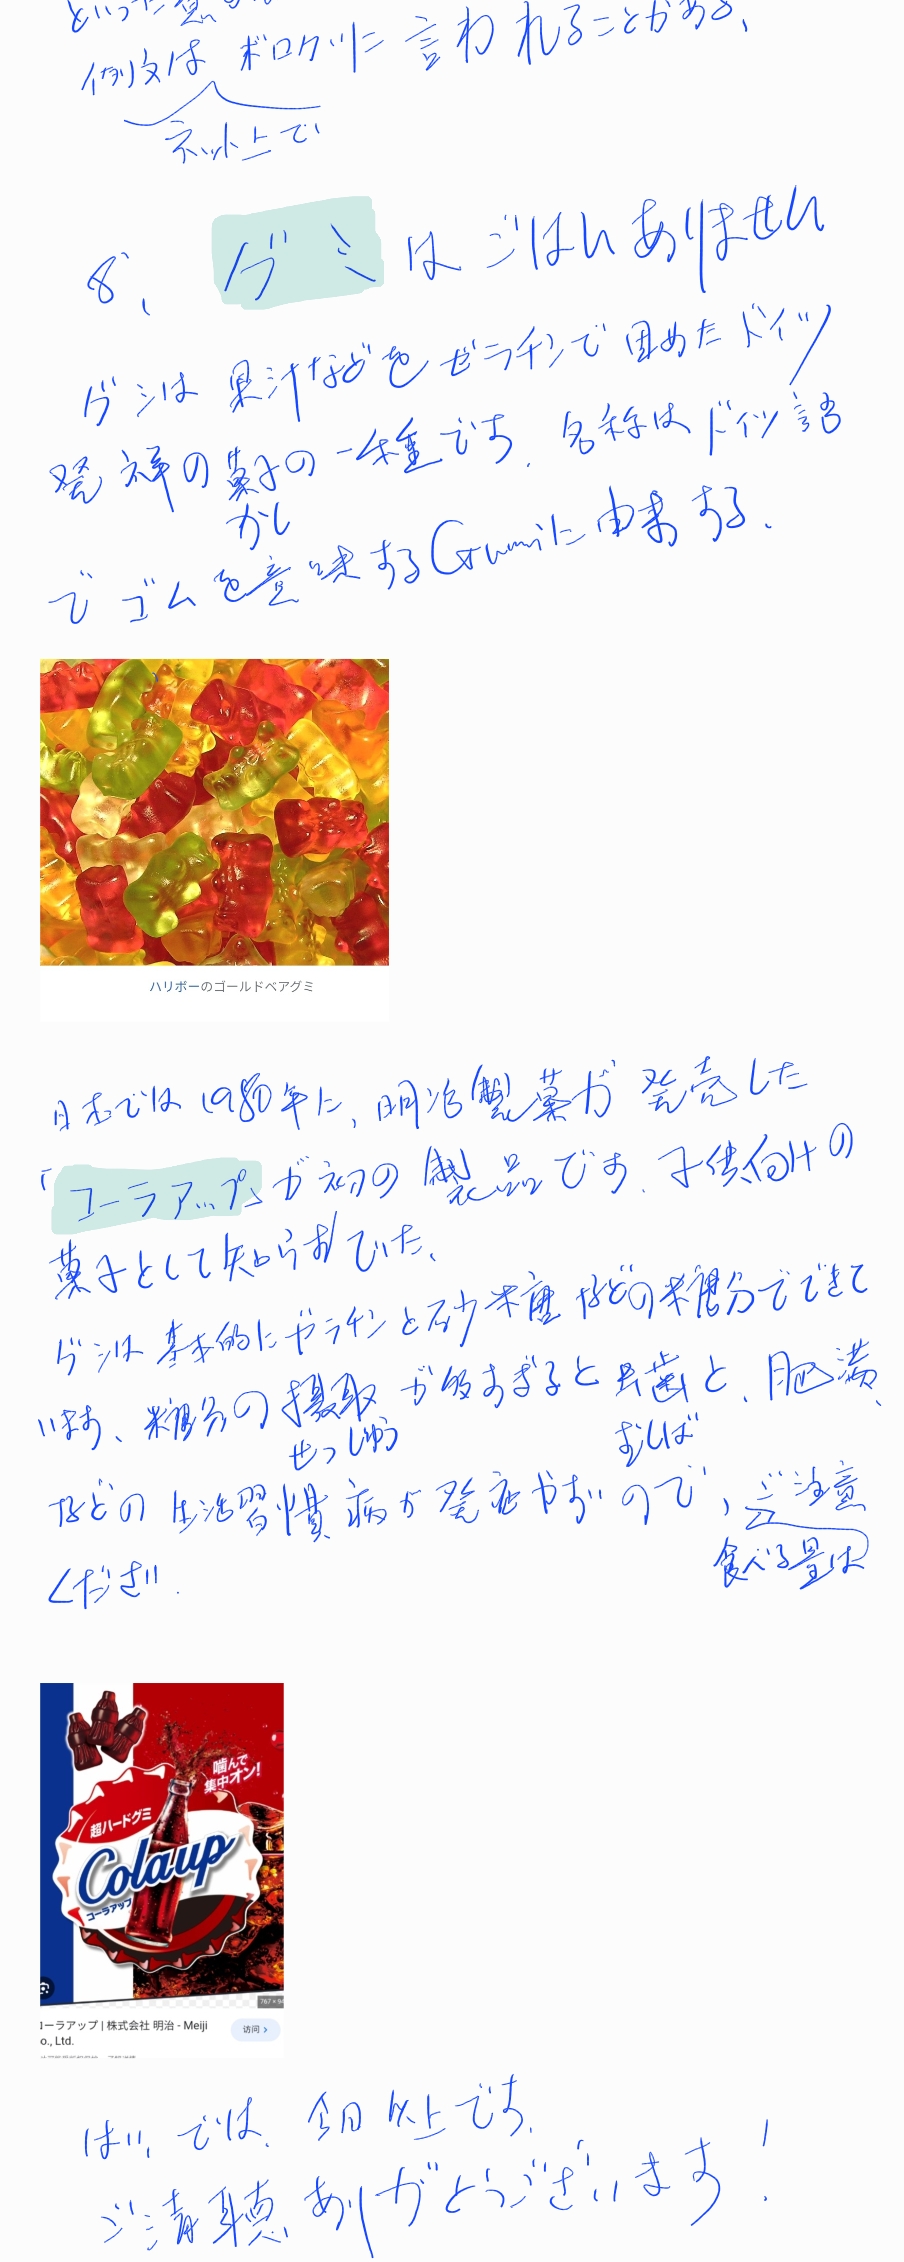 といった意
例文は ボロクソに 言われることがある、
ネット上で
8、 グミ は ごはんありません
グミは 果汁などを ゼラチンで 固めた ドイツ
発祥の菓子の一種です、名称は ドイツ語
かし
で ゴムを意味するGummiに由来する、
ハリボーのゴールドベアグミ
日本では 1980年に、明治製菓が 発売した
「コーラアップ」が初の 製品です、子供向けの
菓子として知られていた、
グミは 基本的にゼラチンと砂糖などの糖分でできて
います、糖分の摂取 が多すぎると虫歯と、肥満、
せっしゅう むしば
などの 生活習慣病が 発症やすいので、ご注意
食べる量は
ください、
噛んで
集中オン!
超ハードグミ
Colaup
コーラアップ
コーラアップ | 株式会社 明治 - Meiji
o., Ltd.
访问 >
はい、では、今日以上です、
ご清聴ありがとうございます!